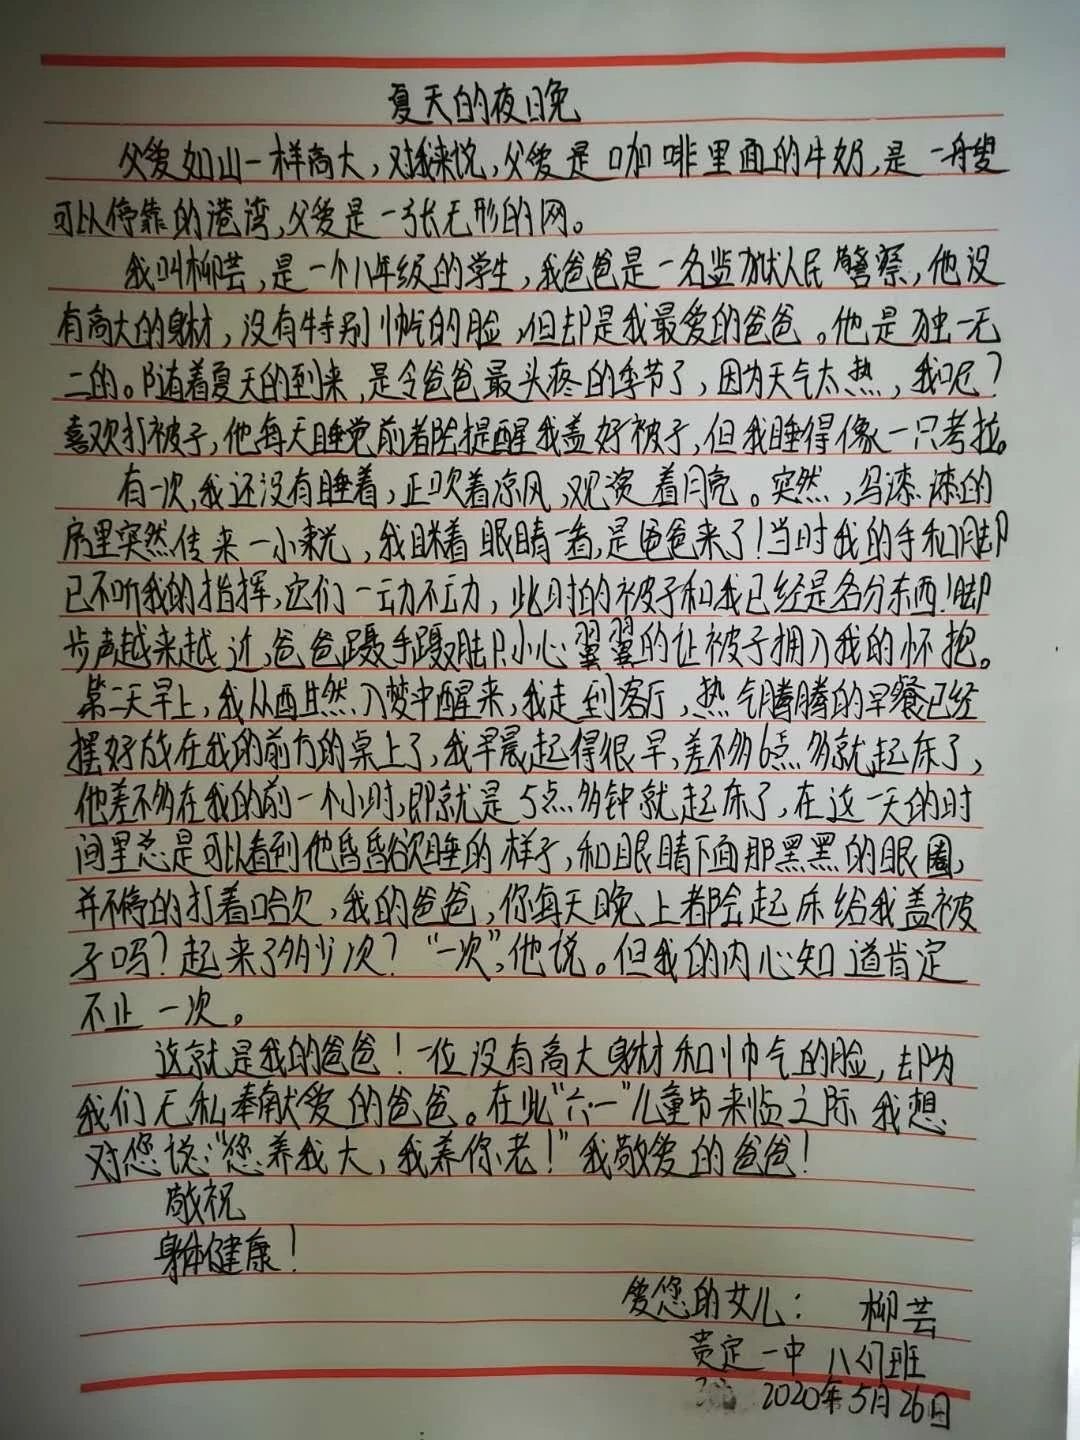 夏天的夜晚
父爱如山一样高大，对我来说，父爱是咖啡里面的牛奶，是一艘
可以停靠的港湾，父爱是一张无形的网。
我叫柳芸，是一个八年级的学生，我爸爸是一名监狱人民警察，他没
有高大的身材，没有特别帅气的脸，但却是我最爱的爸爸。他是独一无
二的。随着夏天的到来，是令爸爸最头疼的季节了，因为天气太热，我呢？
喜欢打被子，他每天睡觉前都会提醒我盖好被子，但我睡得像一只考拉。
有一次，我还没有睡着，正吹着凉风，观赏着月亮。突然，乌漆漆的
房里突然传来一小束光，我眯着眼睛一看，是爸爸来了！当时我的手和脚
已不听我的指挥，它们一动不动，此时的被子和我已经是各分东西！脚
步声越来越近，爸爸蹑手蹑脚小心翼翼的让被子拥入我的怀抱。
第二天早上，我从酣然入梦中醒来，我走到客厅，热气腾腾的早餐已经
摆好放在我的前方的桌上了，我早晨起得很早，差不多6点多就起床了，
他差不多在我的前一个小时，即就是5点多钟就起床了，在这一天的时
间里总是可以看到他昏昏欲睡的样子，和眼睛下面那黑黑的眼圈，
并不停的打着哈欠，我的爸爸，你每天晚上都会起床给我盖被
子吗？起来了多少次？“一次”，他说。但我的内心知道肯定
不止一次。
这就是我的爸爸！一位没有高大身材和帅气的脸，却为
我们无私奉献爱的爸爸。在此“六一”儿童节来临之际 我想
对您说：“您养我大，我养你老！”我敬爱的爸爸！
敬祝
身体健康！
爱您的女儿： 柳芸
贵定一中 八(7)班
2020年5月26日